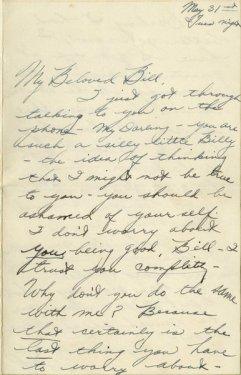 May 31st
Tues night
My Beloved Bill,
I just got through
talking to you on the
phone - My Darling - you are
such a silly little Billy
- the idea of thinking
that I might not be true
to you - you should be
ashamed of yourself
I don't worry about
you being good, Bill - I
trust you completely -
Why don't you do the same
with me? Because
that certainly is the
last thing you have
to worry about -